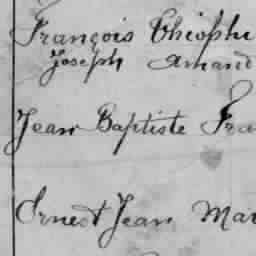 François Théophi
Joseph Amand
Jean Baptiste Fra
Ernest Jean Mar